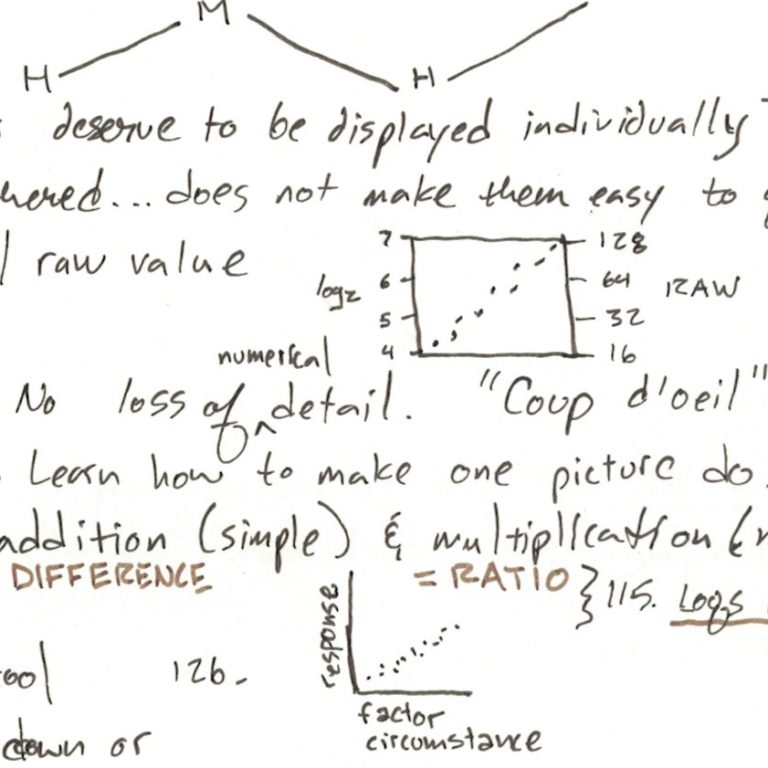 M
H H
deserve to be displayed individually
hered... does not make them easy to
raw value
7 128
log2 6 64 RAW
5 32
numerical 4 16
No loss of ^ detail. "Coup d'oeil"
Learn how to make one picture do
addition (simple) & multiplication (
DIFFERENCE = RATIO } 115. Logs
response
ool 126.
factor
down or circumstance